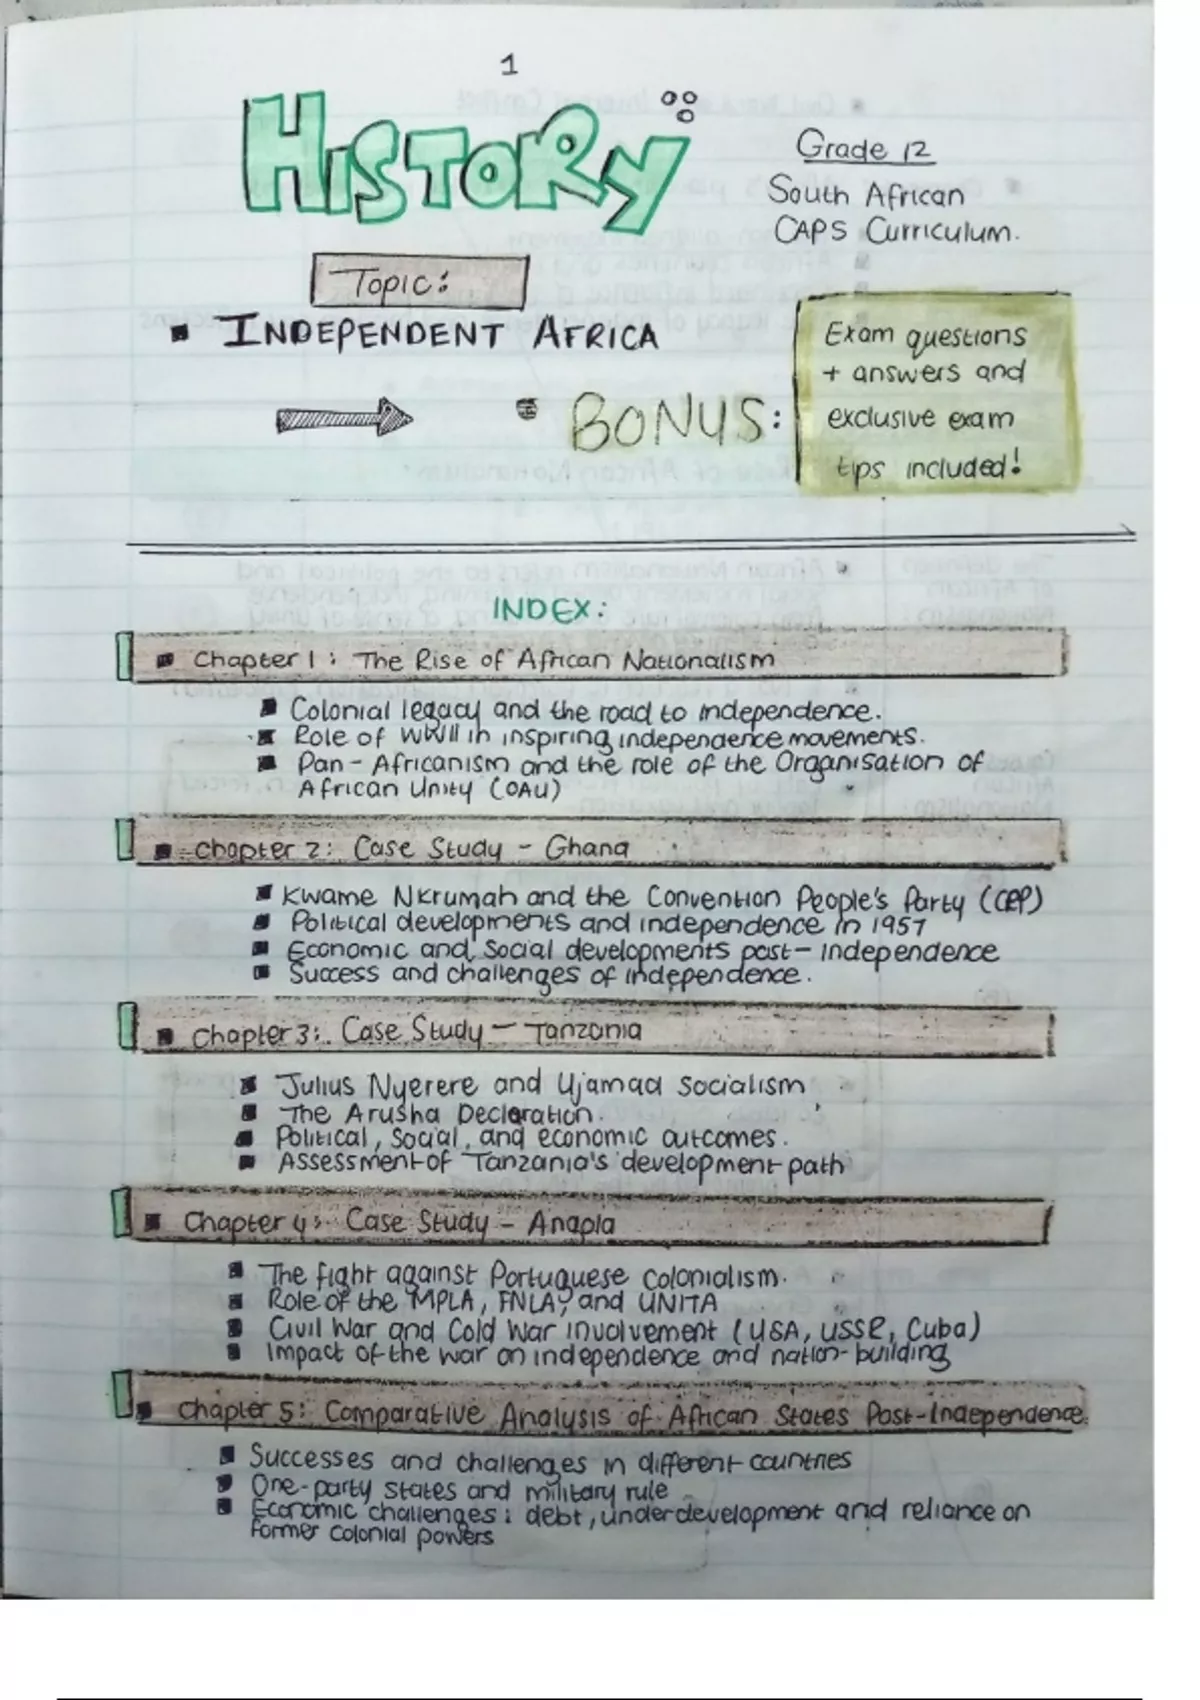 1
HISTORY
Grade 12
South African
CAPS Curriculum.
Topic:
INDEPENDENT AFRICA
BONUS:
Exam questions
+ answers and
exclusive exam
tips included!
INDEX:
Chapter 1: The Rise of African Nationalism
Colonial legacy and the road to independence.
Role of WWII in inspiring independence movements.
Pan-Africanism and the role of the Organisation of
African Unity (OAU)
Chapter 2: Case Study - Ghana
Kwame Nkrumah and the Convention People's Party (CPP)
Political developments and independence in 1957
Economic and Social developments post-independence
Success and challenges of independence.
Chapter 3: Case Study - Tanzania
Julius Nyerere and Ujamaa Socialism
The Arusha Declaration.
Political, Social, and economic outcomes.
Assessment of Tanzania's development path
Chapter 4: Case Study - Angola
The fight against Portuguese colonialism.
Role of the MPLA, FNLA, and UNITA
Civil War and Cold War involvement (USA, USSR, Cuba)
Impact of the war on independence and nation-building
Chapter 5: Comparative Analysis of African States Post-Independence.
Successes and challenges in different countries
One-party states and military rule
Economic challenges: debt, underdevelopment and reliance on
former colonial powers